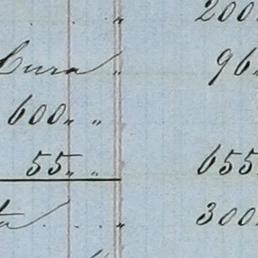 " 200"
Cura " 96"
600 " "
55 " " 655"
ta " 300"